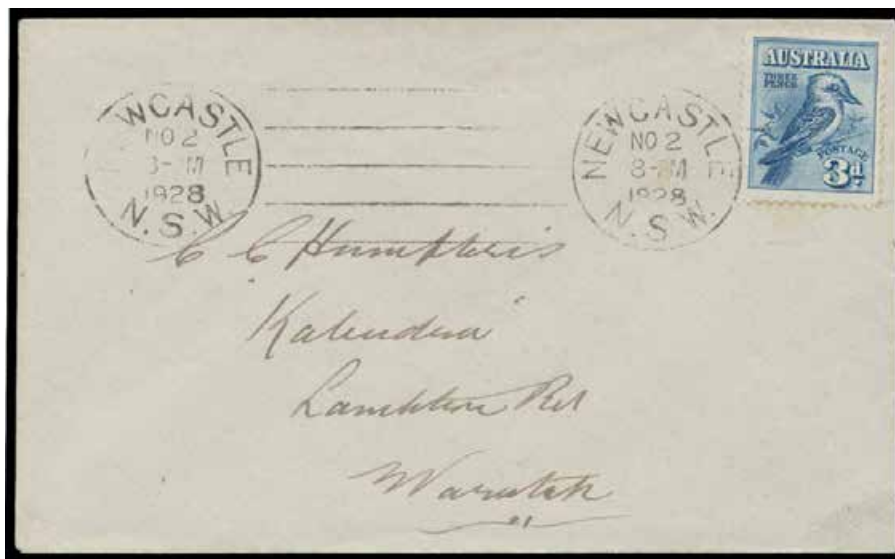 WCASTLE
NO 2
M
1928
N.S.W.
NEWCASTLE
NO 2
8- M
1928
N.S.W.
AUSTRALIA
THREE
PENCE
POSTAGE
3d
C C
Lambton Rd
Waratah